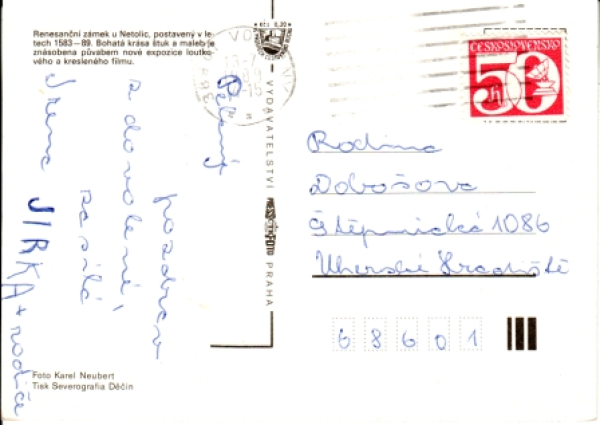 Renesanční zámek u Netolic, postavený v le-
tech 1583—89. Bohatá krása štuk a maleb je
znásobena půvabem nové expozice loutko-
vého a kresleného filmu.
Kčs 0,30
VYDAVATELSTVÍ
PRAHA
ČESKOSLOVENSKO
50
h
Pěkný
pozdrav
z dovolené,
zasílá
Irena JIRKA + rodiče
Rodina
Dobošova
Štěpnická 1086
Uherské Hradiště
68601
Foto Karel Neubert
Tisk Severografia Děčín